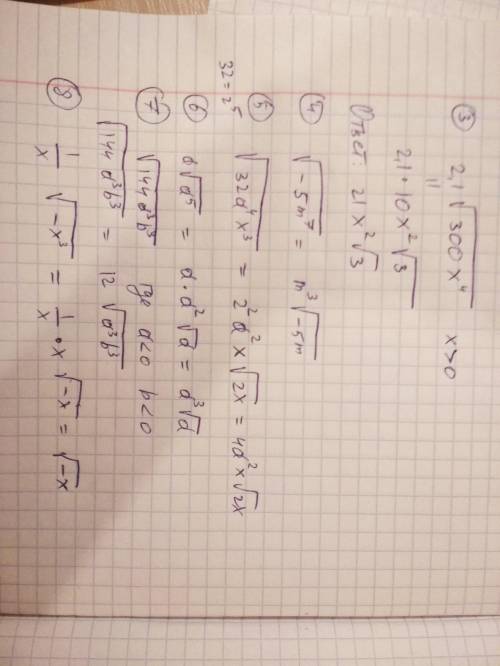 ③ 2,1√300x⁴ x>0
||
2,1·10x²√3
Ответ: 21x²√3
④ √-5m⁷ = m³√-5m
⑤ √32a⁴x³ = 2²a²x√2x = 4a²x√2x
32=2⁵
⑥ a√a⁵ = a·a²√a = a³√a
⑦ √144a³b³ где a<0 b<0
√144a³b³ = 12√a³b³
⑧ 1/x √-x³ = 1/x · x√-x = √-x